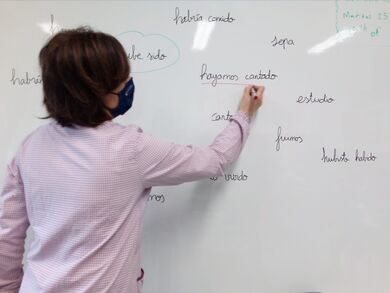 habría comido
Martes 15
of
sepa
ube sido
habría
hayamos cantado
estudio
canto
fuimos
hubiste habido
vivido
mos